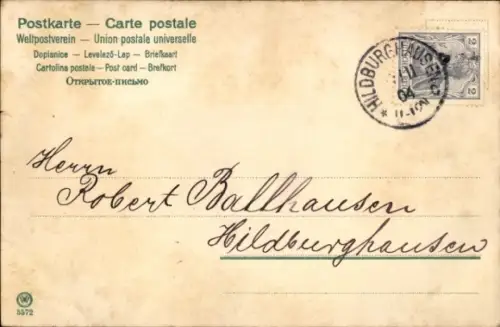 Postkarte — Carte postale
Weltpostverein — Union postale universelle
Dopisnice — Levelező-Lap — Briefkaart
Cartolina postale — Post card — Brefkort
Открытое-письмо
HILDBURGHAUSEN
04
11-12V
2
2
Herrn
Robert Ballhausen
Hildburghausen
5572